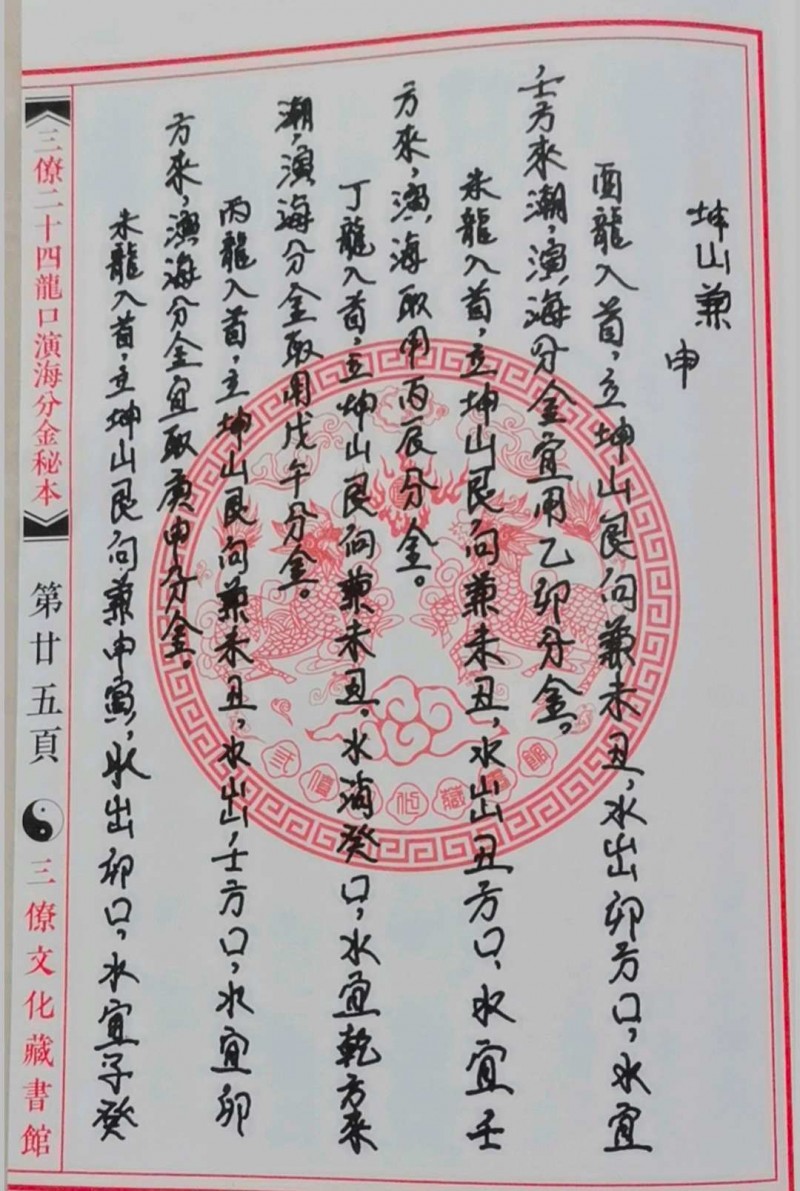 坤山兼
申
酉龍入首，立坤山艮向兼未丑，水出卯方口，水宜
，壬方來潮，演海分金宜用乙卯分金。
未龍入首，立坤山艮向兼未丑，水出丑方口、水宜壬
方來，演海取用丙辰分金。
丁龍入首，立坤山艮向兼未丑。水消癸口，水宜乾方來
潮，演海分金取用戊午分金。
丙龍入首，立坤山艮向兼未丑，水出，壬方口，水宜卯
方來，演海分金宜取庚申分金。
未龍入首，立坤山艮向兼申寅，水出卯口，水宜子癸
三僚二十四龍口演海分金秘本
第廿五頁
三僚文化藏書館
三僚文化藏書館